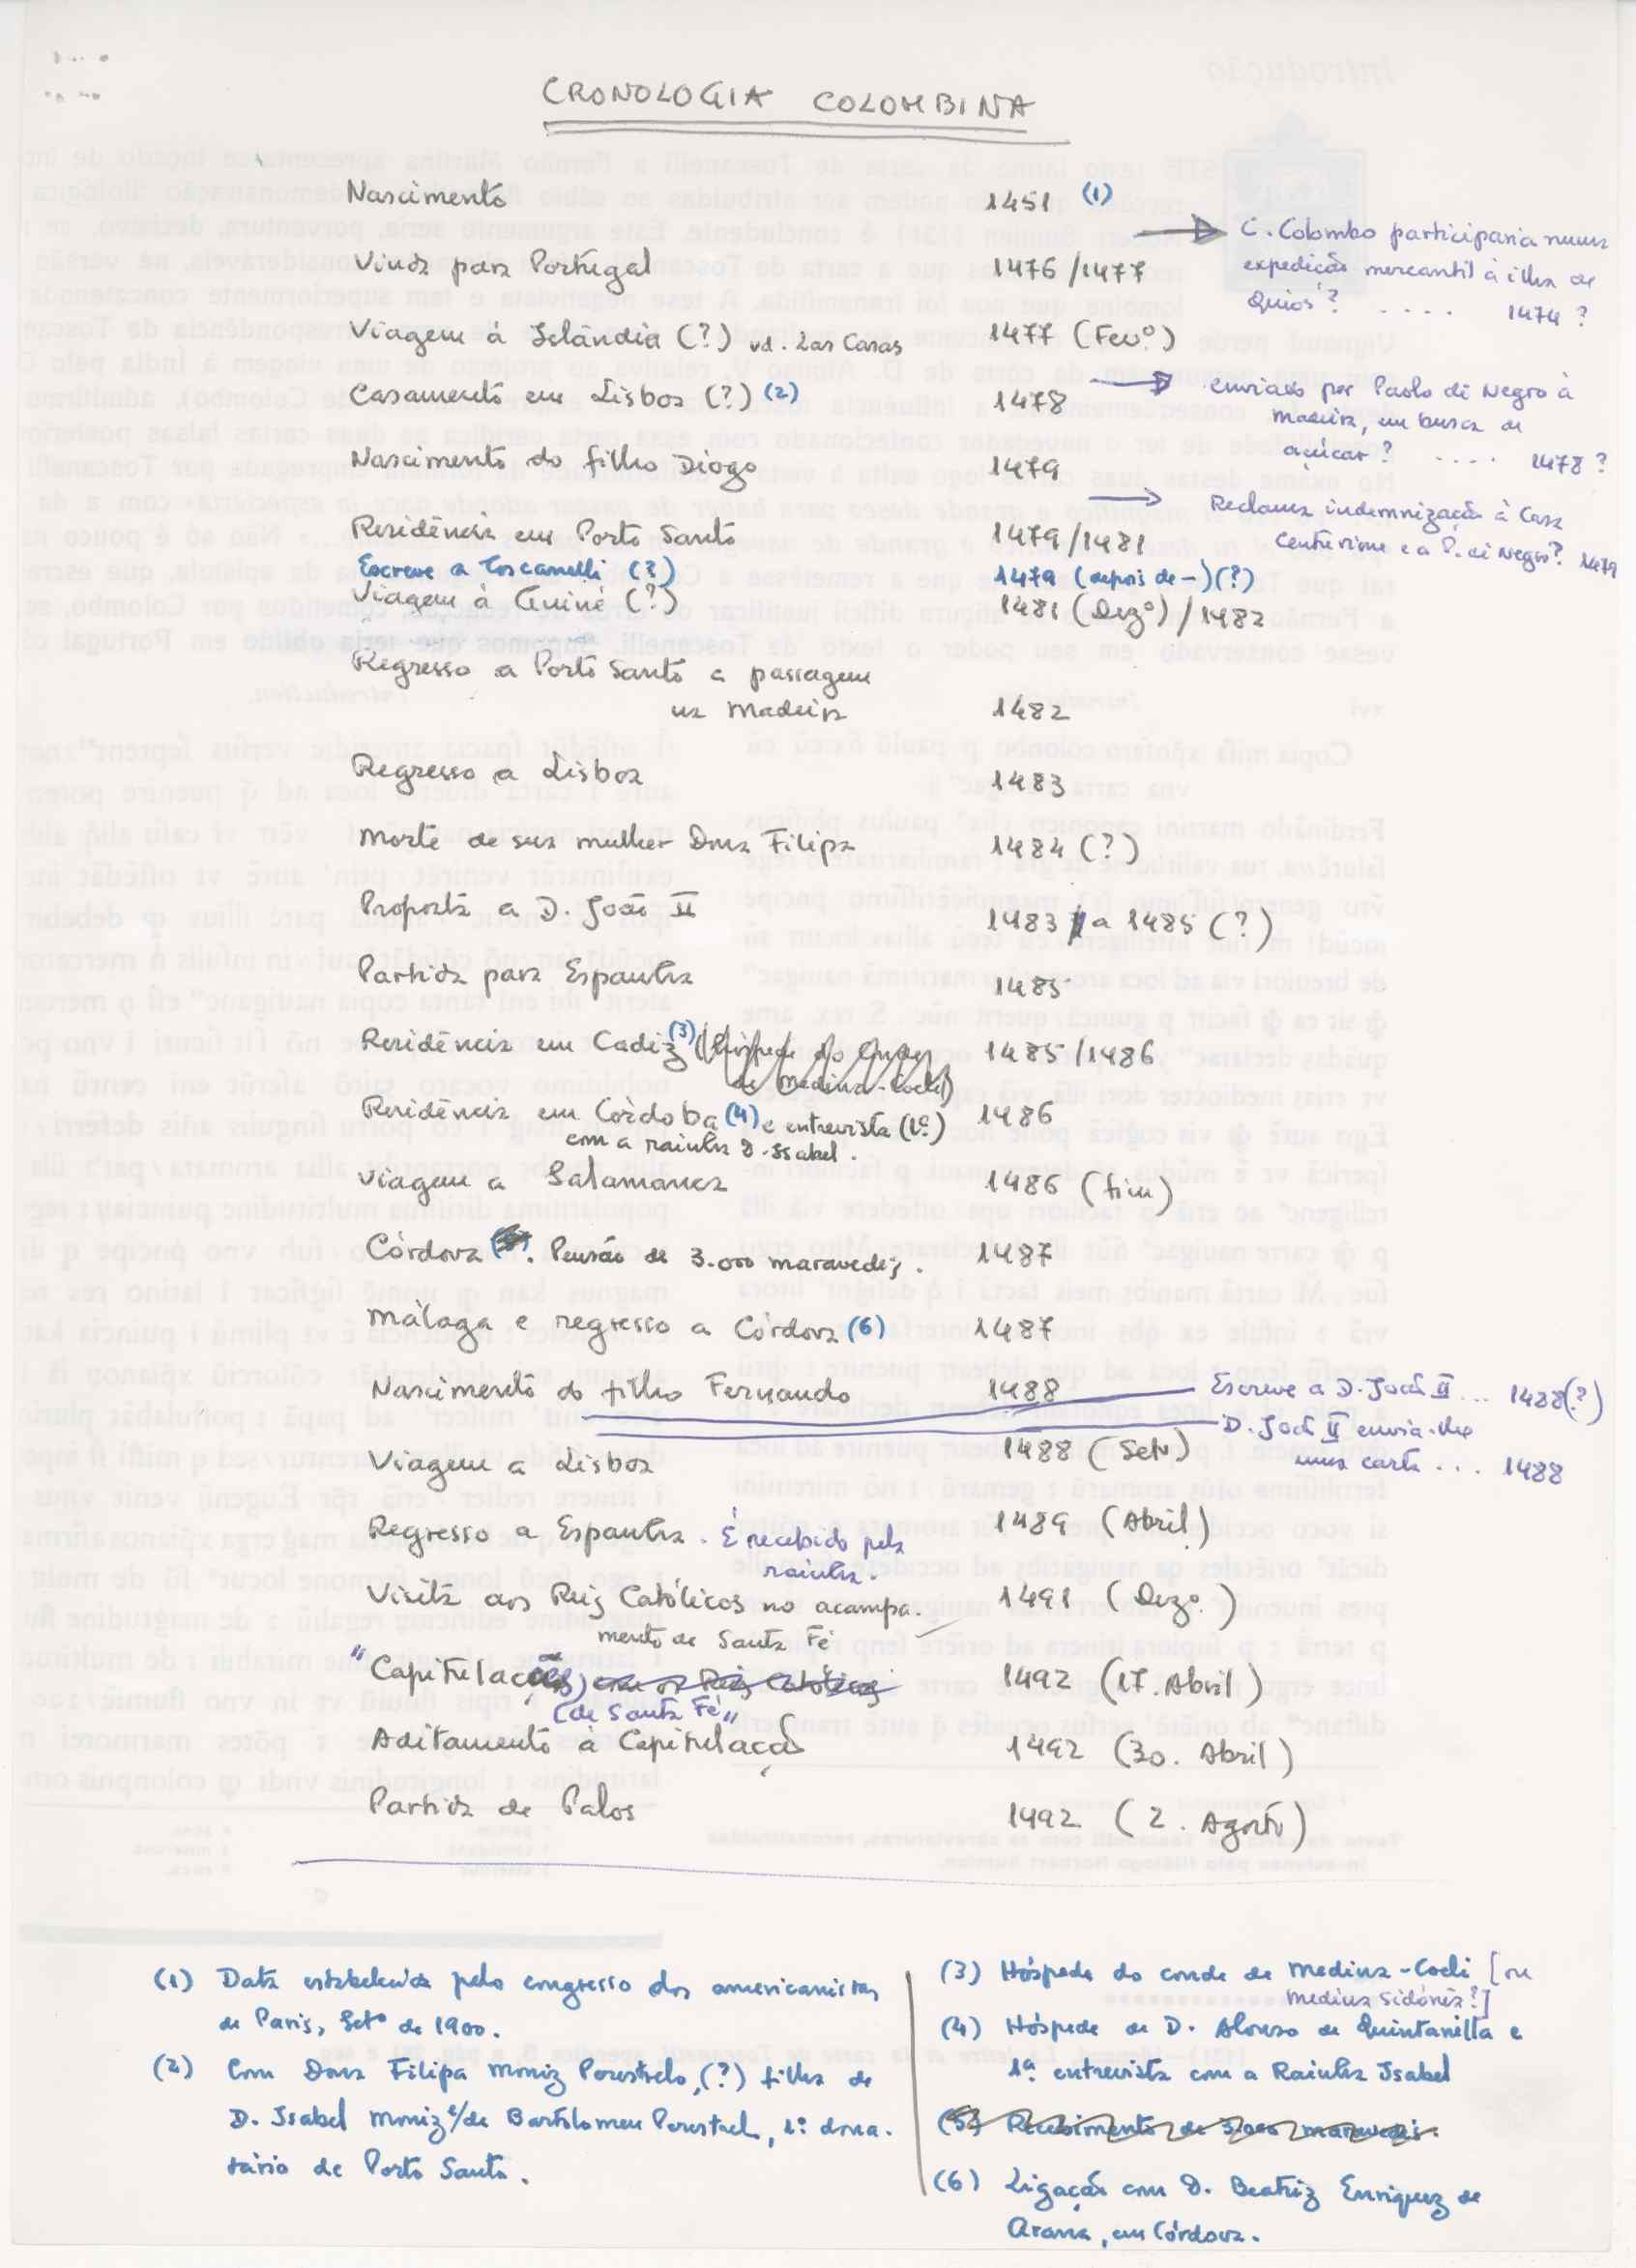 CRONOLOGIA COLOMBINA
Nascimento 1451 (1)
C. Colombo participaria numa
expedição mercantil à ilha de
Quios? .... 1474?
Vinda para Portugal 1476/1477
Viagem à Islândia (?) vd. Las Casas 1477 (Fevº)
Casamento em Lisboa (?) (2) 1478
enviado por Paolo di Negro à
Madeira, em busca de
açúcar? .... 1478?
Nascimento do filho Diogo 1479
Reclama indemnização à Casa
Centurione e a P. di Negro? 1479
Residência em Porto Santo 1479/1481
Escreve a Toscanelli (?) 1479 (depois de -) (?)
Viagem à Guiné (?) 1481 (Dezº) / 1482
Regresso a Porto Santo e passagem
na Madeira 1482
Regresso a Lisboa 1483
Morte de sua mulher Dona Filipa 1484 (?)
Proposta a D. João II 1483 a 1485 (?)
Partida para Espanha 1485
Residência em Cadiz (3) (Hóspede do Conde 1485/1486
de Medina-Coeli)
Residência em Córdoba (4) e entrevista (1ª) 1486
com a rainha D. Isabel.
Viagem a Salamanca 1486 (fim)
Córdova. Pensão de 3.000 maravedis. 1487
Málaga e regresso a Córdova (6) 1487
Nascimento do filho Fernando 1488
Escreve a D. João II ... 1488(?)
D. João II envia-lhe
uma carta ... 1488
Viagem a Lisboa 1488 (Setº)
Regresso a Espanha. É recebido pela 1489 (Abril)
rainha.
Visita aos Reis Católicos no acampa- 1491 (Dezº.)
mento de Santa Fé
"Capitulação com os Reis Católicos 1492 (17. Abril)
(de Santa Fé"
Aditamento à Capitulação 1492 (30. Abril)
Partida de Palos 1492 (2. Agosto)
(1) Data estabelecida pelo congresso dos americanistas
de Paris, Setº de 1900.
(2) Com Dona Filipa Moniz Perestrelo, (?) filha de
D. Isabel Moniz e/de Bartolomeu Perestrel, 1º dona-
tário de Porto Santo.
(3) Hóspede do conde de Medina-Coeli [ou
Medina Sidónia?]
(4) Hóspede de D. Alonso de Quintanilla e
1ª entrevista com a Rainha Isabel
(5) Recebimento de 3.000 maravedis.
(6) Ligação com D. Beatriz Enriquez de
Arana, em Córdova.